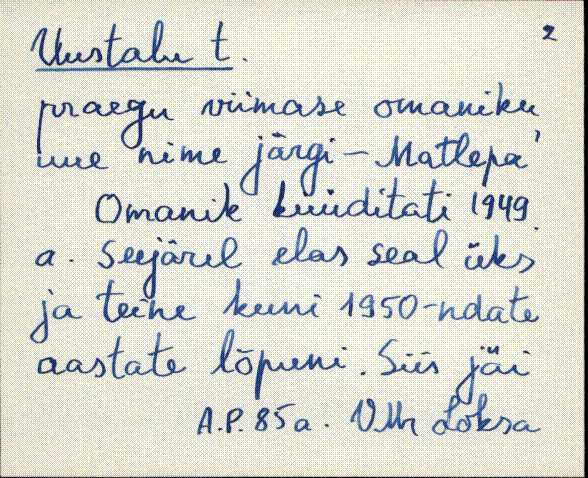 2
Uustalu t.
praegu viimase omaniku
uue nime järgi – Matlepa'
Omanik küüditati 1949.
a. Seejärel elas seal üks
ja teine kuni 1950-ndate
aastate lõpuni. Siis jäi
A.P. 85a. VMr Loksa